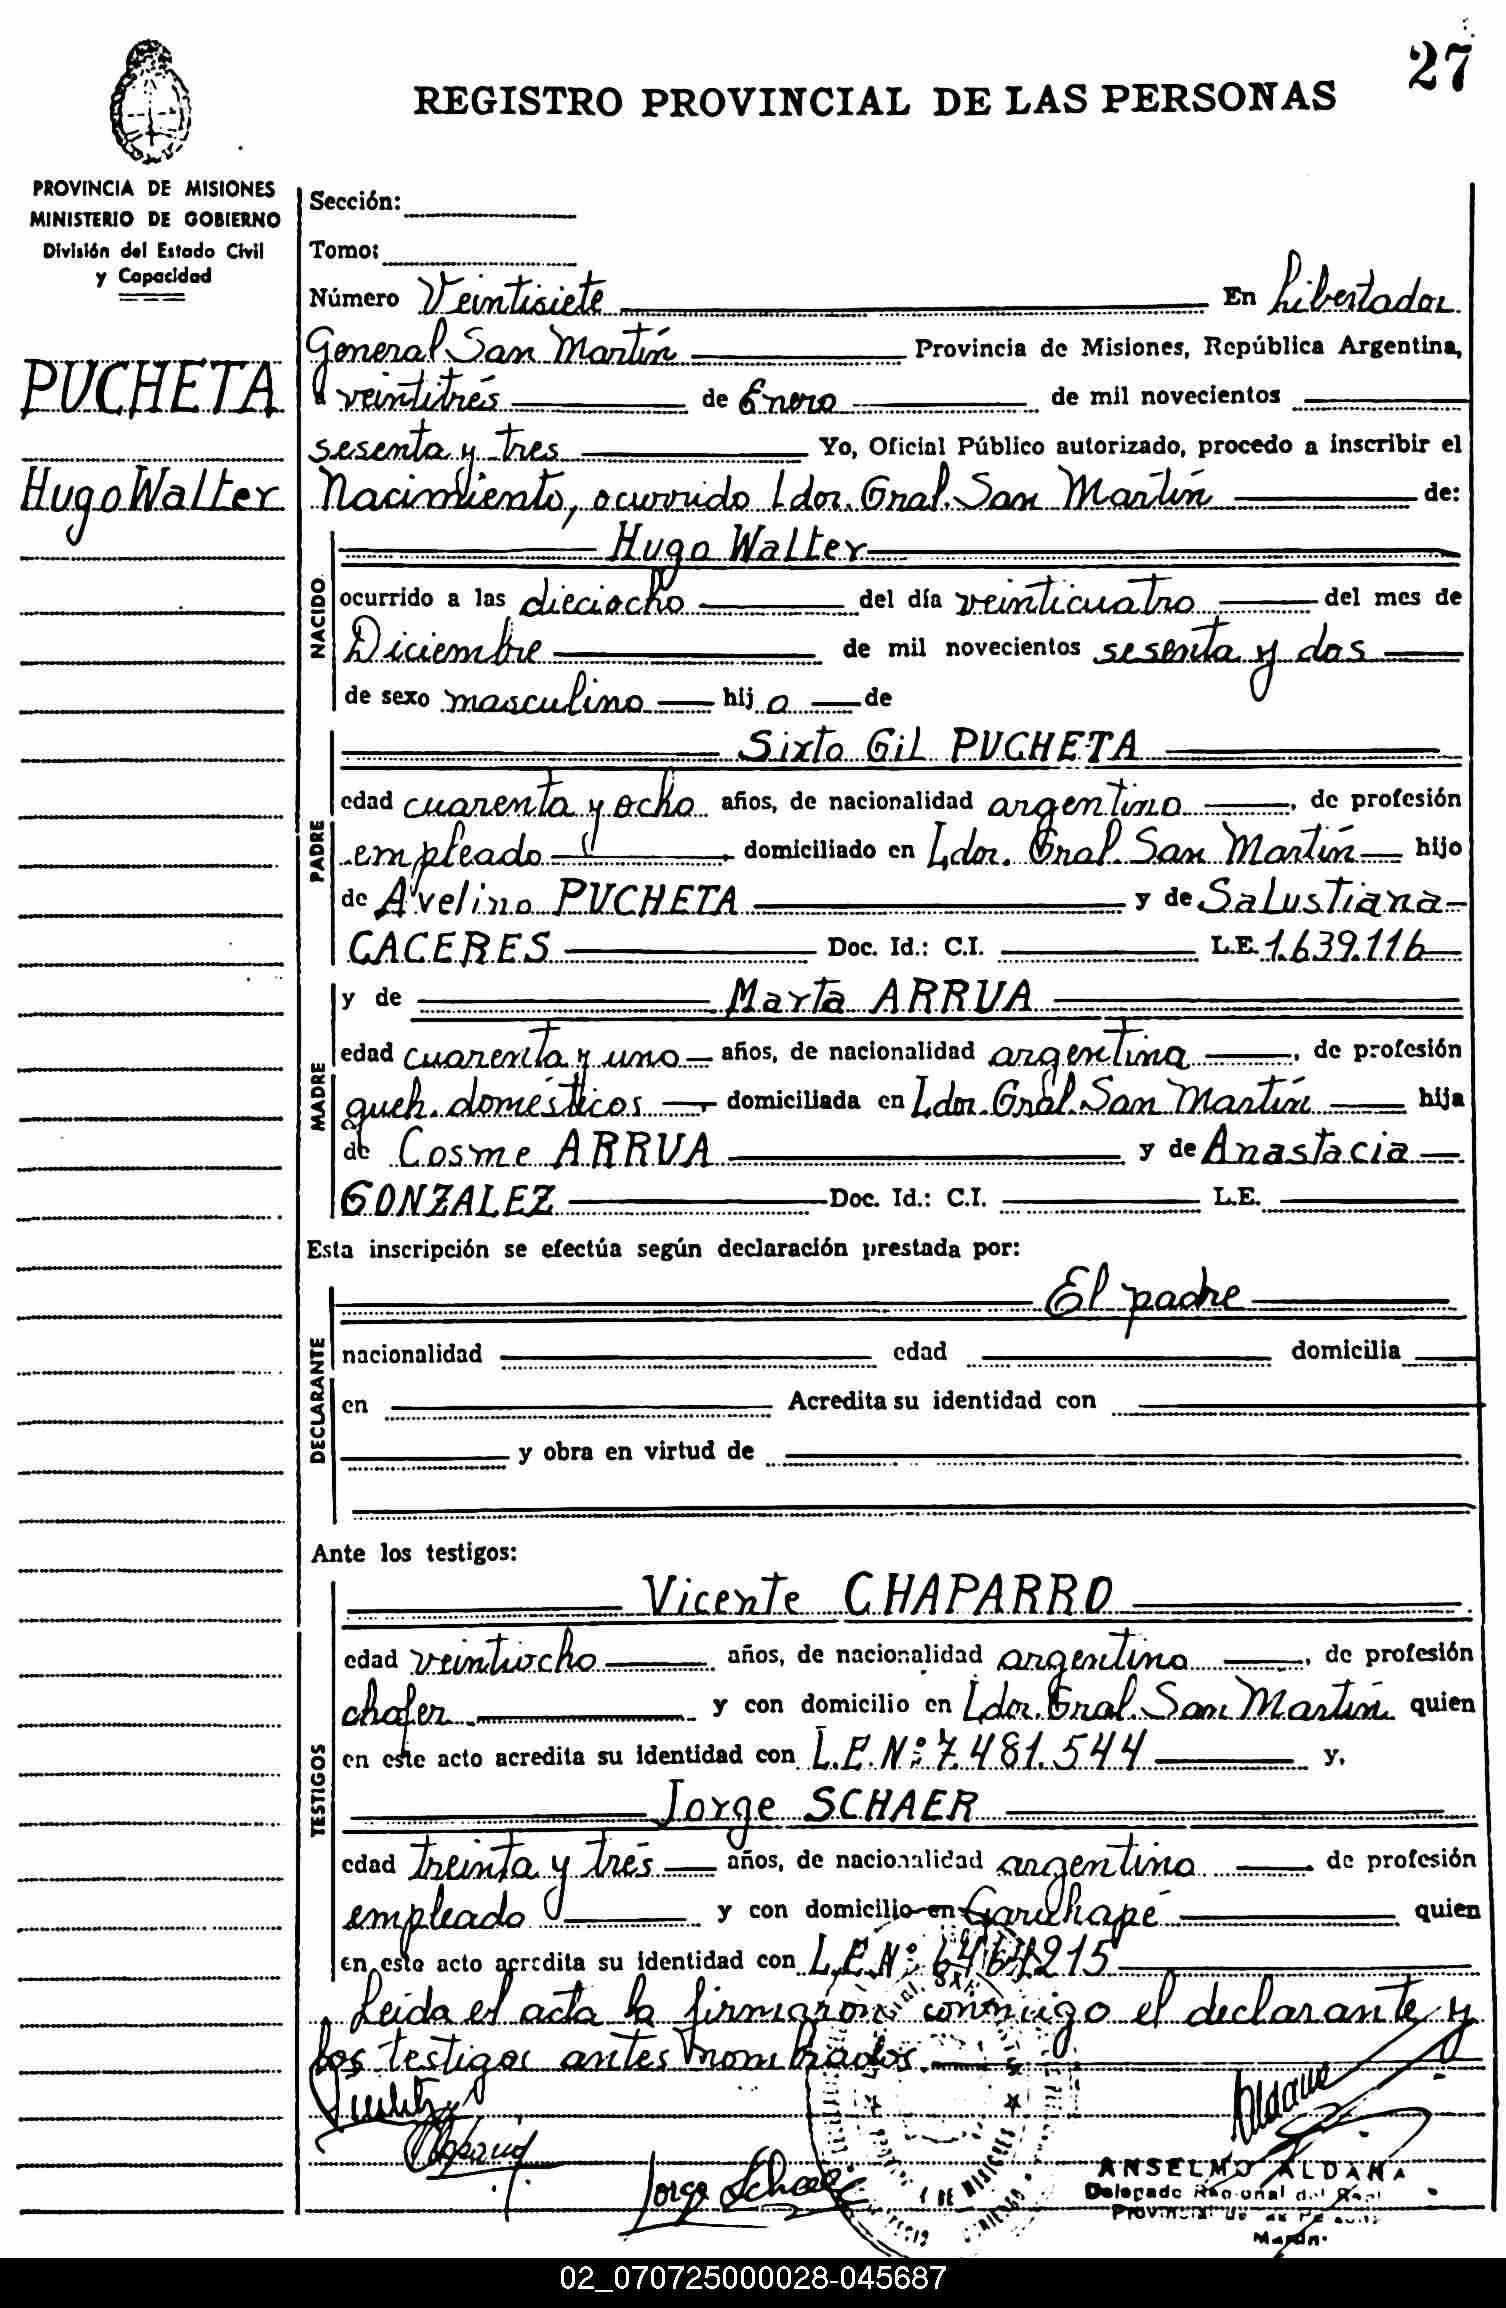 27
REGISTRO PROVINCIAL DE LAS PERSONAS
PROVINCIA DE MISIONES
MINISTERIO DE GOBIERNO
División del Estado Civil
y Capacidad
PUCHETA
Hugo Walter
Sección:
Tomo:
Número Veintisiete En Libertador
General San Martín Provincia de Misiones, República Argentina,
a veintitrés de Enero de mil novecientos
sesenta y tres Yo, Oficial Público autorizado, procedo a inscribir el
Nacimiento, ocurrido Ldor. Gral. San Martín de:
NACIDO
Hugo Walter
ocurrido a las dieciocho del día veinticuatro del mes de
Diciembre de mil novecientos sesenta y dos
de sexo masculino hijo de
PADRE
Sixto Gil PUCHETA
edad cuarenta y ocho años, de nacionalidad argentino, de profesión
empleado domiciliado en Ldor. Gral. San Martín hijo
de Avelino PUCHETA y de Salustiana
CACERES Doc. Id.: C.I. L.E. 1.639.116
MADRE
y de Marta ARRUA
edad cuarenta y uno años, de nacionalidad argentina, de profesión
queh. domésticos, domiciliada en Ldor. Gral. San Martín hija
de Cosme ARRUA y de Anastacia
GONZALEZ Doc. Id.: C.I. L.E.
Esta inscripción se efectúa según declaración prestada por:
DECLARANTE
El padre
nacionalidad edad domicilia
en Acredita su identidad con
y obra en virtud de
Ante los testigos:
TESTIGOS
Vicente CHAPARRO
edad veintiocho años, de nacionalidad argentino, de profesión
chofer y con domicilio en Ldor. Gral. San Martín quien
en este acto acredita su identidad con L.E. Nº 7.481.544 y,
Jorge SCHAER
edad treinta y trés años, de nacionalidad argentino de profesión
empleado y con domicilio en Garuhapé quien
en este acto acredita su identidad con L.E.Nº
Leída el acta la firmaron conmigo el declarante y
los testigos antes nombrados.
Jorge Schaer
ANSELMO ALDANA
Delegado Regional del Regl
Provincial de las Personas
02_070725000028-045687